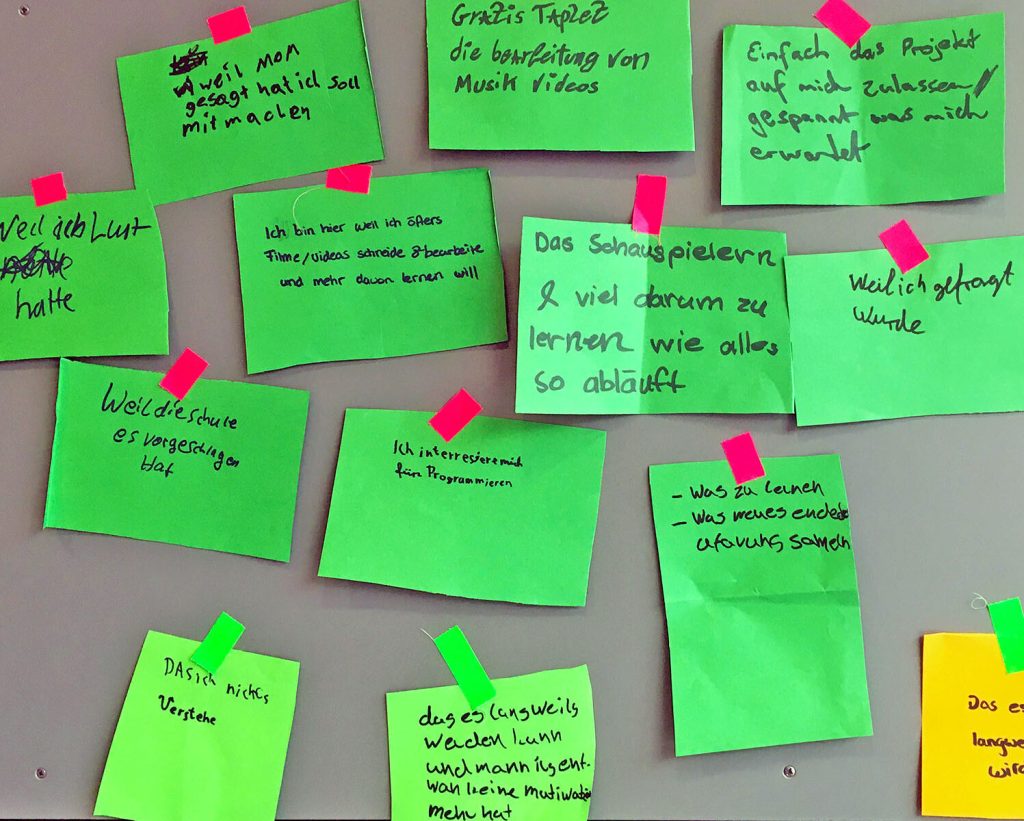 weil MOM
gesagt hat ich soll
mitmachen
GRAZIS TAPLEZ
die bearbeitung von
Musik Videos
Einfach das Projekt
auf mich zulassen/
gespannt was mich
erwartet
Weil ich Lust
hatte
Ich bin hier weil ich öfters
Filme/videos schneide & bearbeite
und mehr davon lernen will
Das Schauspielern
& viel darum zu
lernen wie alles
so abläuft
Weil ich gefragt
wurde
Weil die schule
es vorgeschlagen
Hat
Ich interresiere mich
für Programmieren
- Was zu lernen
- Was neues
sameln
DAS ich nichts
Verstehe
das es langweilig
werden kann
und mann irgent-
wan keine mutivation
mehr hat
Das es
langwe
wird